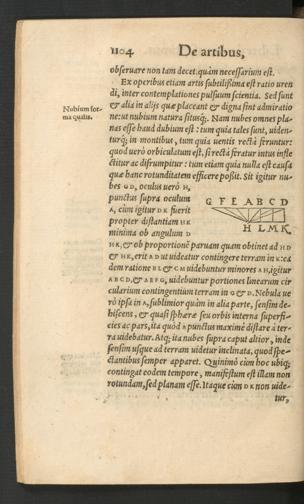 1104 De artibus,
obseruare non tam decet quàm necessarium est.
Ex operibus etiam artis subtilissima est ratio uren
di, inter contemplationes pulsuum scientia. Sed sunt
& alia in alijs quæ placeant & digna sint admiratio
Nubium for-
ma qualis.
ne: ut nubium natura situsq́;. Nam nubes omnes pla
nas esse haud dubium est: tum quia tales sunt, uiden-
turq́; in montibus, tum quia uentis rectà feruntur:
quod uerò orbiculatum est, si rectà feratur intus infle
ctitur ac disrumpitur: tum etiam quia nulla est causa
quæ hanc rotunditatem efficere possit. Sit igitur nu-
bes G D, oculus uerò H,
punctus supra oculum
A, cùm igitur D K fuerit
propter distantiam H K
minima ob angulum D
G F E A B C D
H L M K
H K, & ob proportionẽ paruam quam obtinet ad H D
& H K, erit A D ut uideatur contingere terram in K: ea
dem ratione B L & C M uidebuntur minores A H, igitur
A B C D, & A E F G, uidebuntur portiones linearum cir
cularium contingentium terram in G & D. Nebula ue
rò ipsa in A, sublimior quàm in alia parte, sensim de-
hiscens, & quasi sphæræ seu orbis interna superfi-
cies ac pars, ita quòd A punctus maximè distare à ter-
ra uidebatur. Atq́; ita nubes supra caput altior, inde
sensim usque ad terram uidetur inclinata, quod spe-
ctantibus semper apparet. Quinimò cùm hoc ubiq́;
contingat eodem tempore, manifestum est illam non
rotundam, sed planam esse. Itaque cùm D K non uide-
tur,